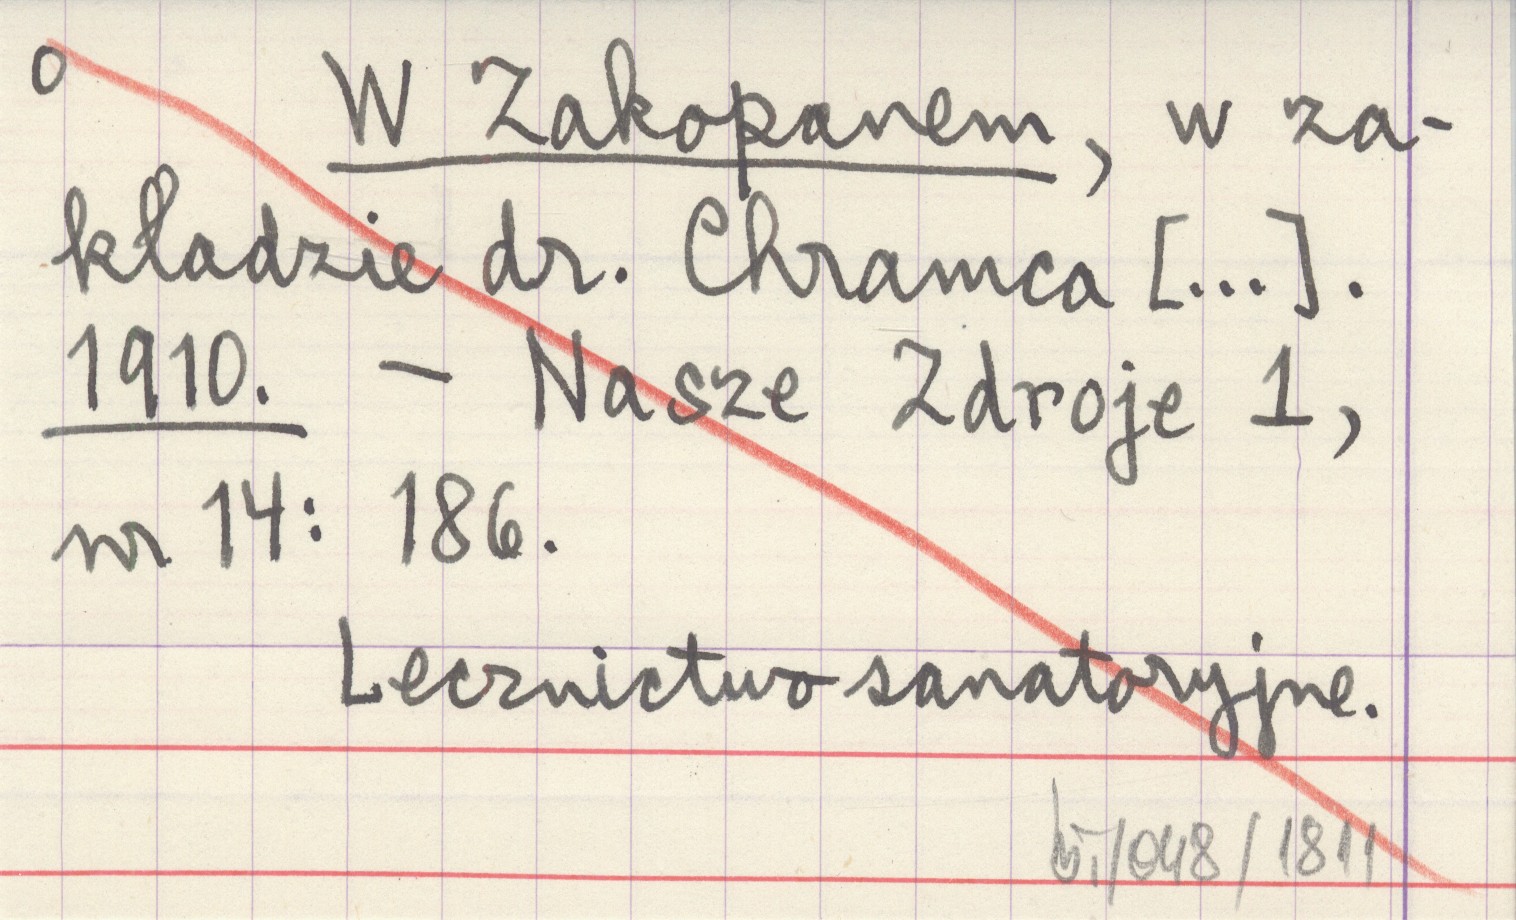 o W Zakopanem, w za-
kładzie dr. Chramca [...].
1910. – Nasze Zdroje 1,
nr 14: 186.
Lecznictwo sanatoryjne.
/048/1811